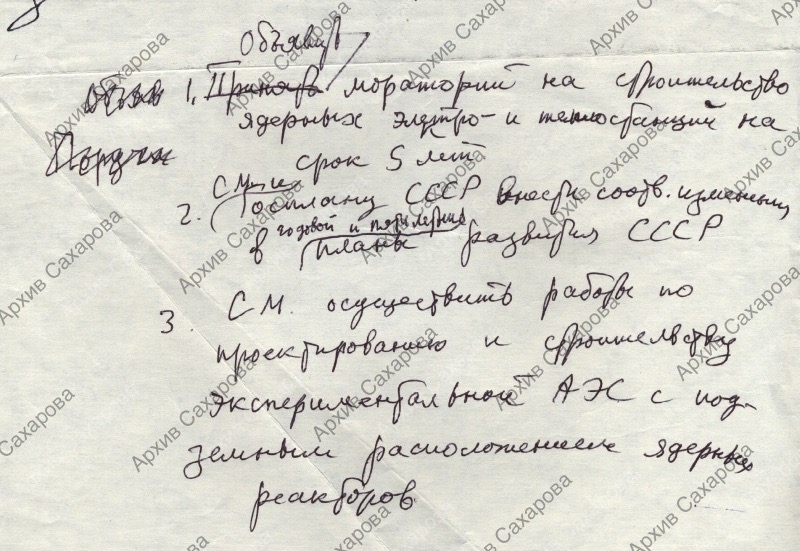 Объявить
1. Принять мораторий на строительство
ядерных электро- и теплостанций на
срок 5 лет
С.М. и
2. Госплану СССР внести соотв. изменения
годовой и пятилетние
в планы развития СССР
3. С.М. осуществить работы по
проектированию и строительству
экспериментальной АЭС с под-
земным расположением ядерных
реакторов
Архив Сахарова